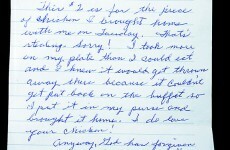 This $2 is for the piece
of chicken I brought home
with me on Tuesday. That's
stealing. Sorry! I took more
on my plate than I could eat
and I knew it would get thrown
away there because it couldn't
get put back on the buffet so
I put it in my purse and
brought it home. I do love
your chicken!
Anyway, God has forgiven